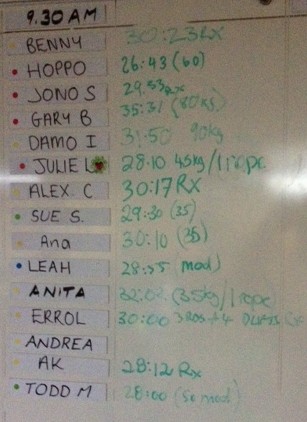 9.30 AM
BENNY 30:23 Rx
HOPPO 26:43 (60)
JONO S 29:53 Rx
GARY B 35:31 (80kg)
DAMO I 31:50 90kg
JULIE L 28:10 45kg/1 rope
ALEX. C 30:17 Rx
SUE S. 29:30 (35)
Ana 30:10 (35)
LEAH 28:55 (mod)
ANITA 32:02 (35kg/1 rope)
ERROL 30:00
ANDREA
AK 28:12 Rx
TODD M 28:00